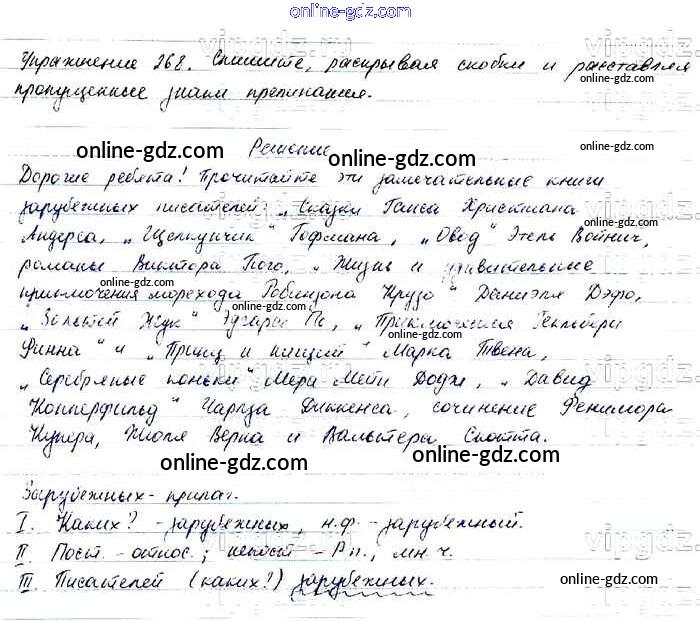 online-gdz.com
Упражнение 268. Спишите, раскрывая скобки и расставляя
online-gdz.com
пропущенные знаки препинания.
online-gdz.com
Решение
online-gdz.com
online-gdz.com
Дорогие ребята! Прочитайте эти замечательные книги
зарубежных писателей: „Сказки Ганса Христиана
online-gdz.com
Андерса, „Щелкунчик“ Гофмана, „Овод“ Этель Войнич,
романы Виктора Гюго, „Жизнь и удивительные
online-gdz.com
приключения морехода Робинзона Крузо“ Даниэля Дэфо,
online-gdz.com
„Золотой Жук“ Эдгара По, „Приключения Гекльбери
Финна“ и „Принц и нищий“ Марка Твена,
online-gdz.com
„Серебряные коньки“ Мери Мейп Додж, „Давид
Копперфильд“ Чарлза Диккенса, сочинение Фенимора
online-gdz.com
Купера, Жюля Верна и Вальтера Скотта.
online-gdz.com
online-gdz.com
Зарубежных - прилаг.
I. Каких? - зарубежных, н.ф. - зарубежный.
II. Пост. - относ.; непост - Р.п., мн.ч.
III. Писателей (каких?) зарубежных.
online-gdz.com
online-gdz.com
vipgdz